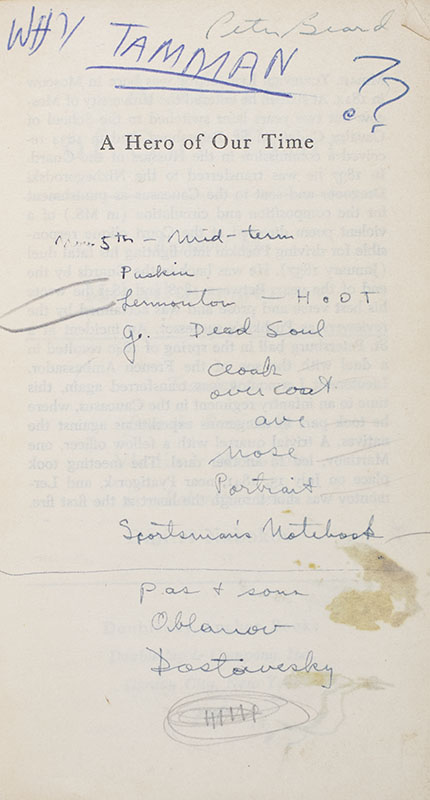 Peter Beard
WHY TAMMAN ??
A Hero of Our Time
Nov. 5th - Mid-term
Puskin
Lermonton - H.O.O.T
G. Dead Soul
Cloak
overcoat
ave
nose
Portrait
Sportsman's Notebook
Pas + sons
Oblanov
Dostavesky